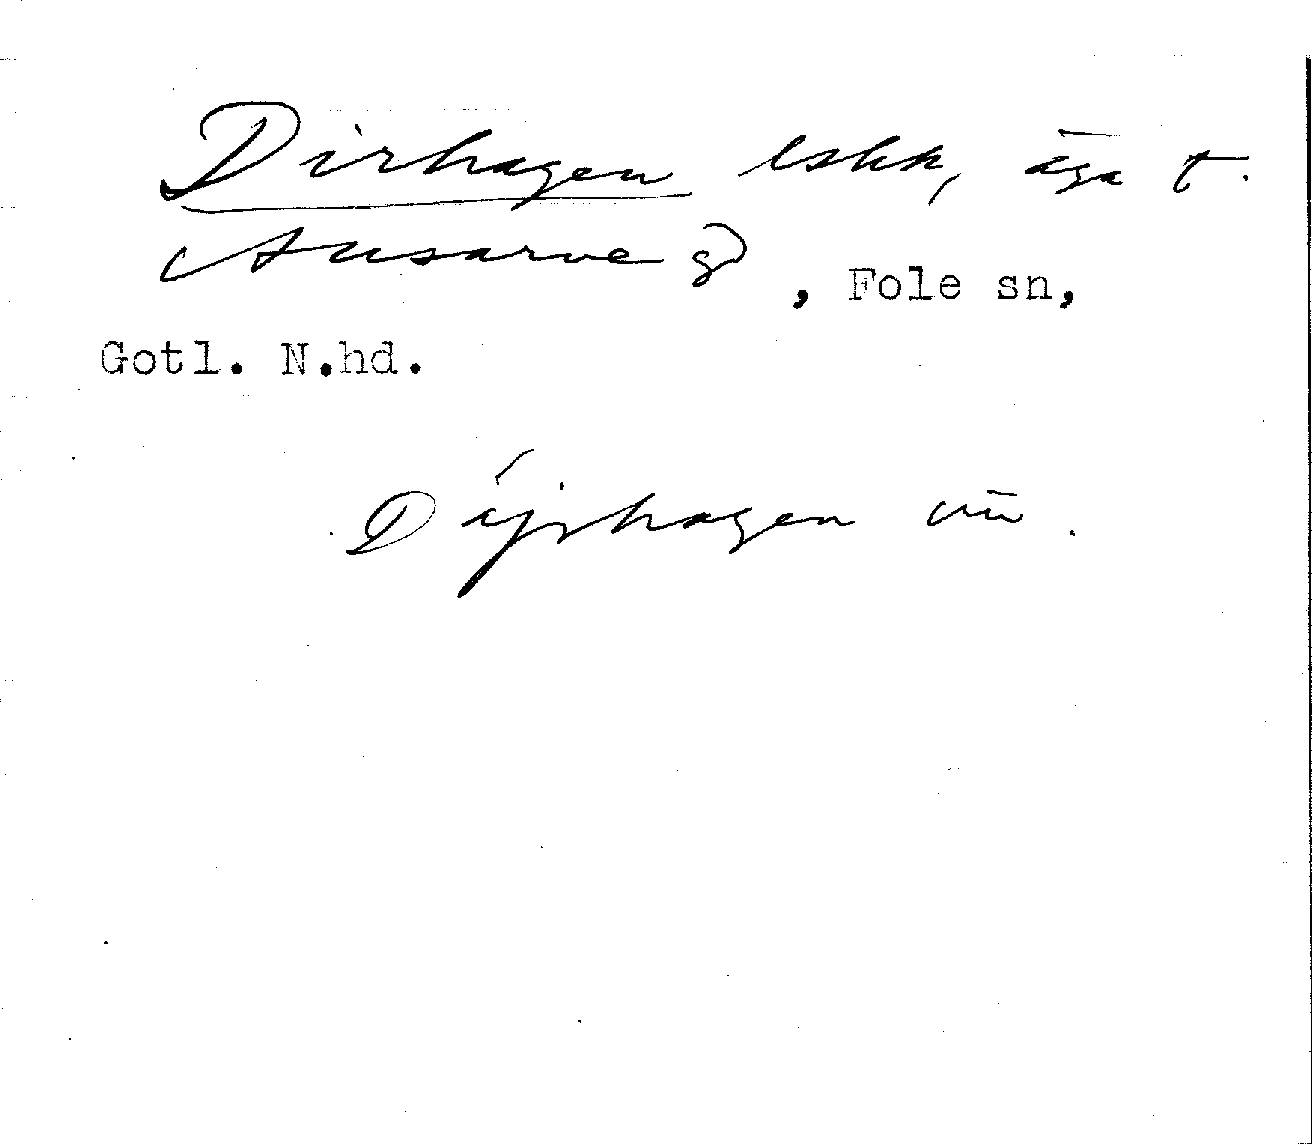 Dirhagen lskk, äga t.
Ausarve g)
, Fole sn,
Gotl. N.hd.
Däjrhagen